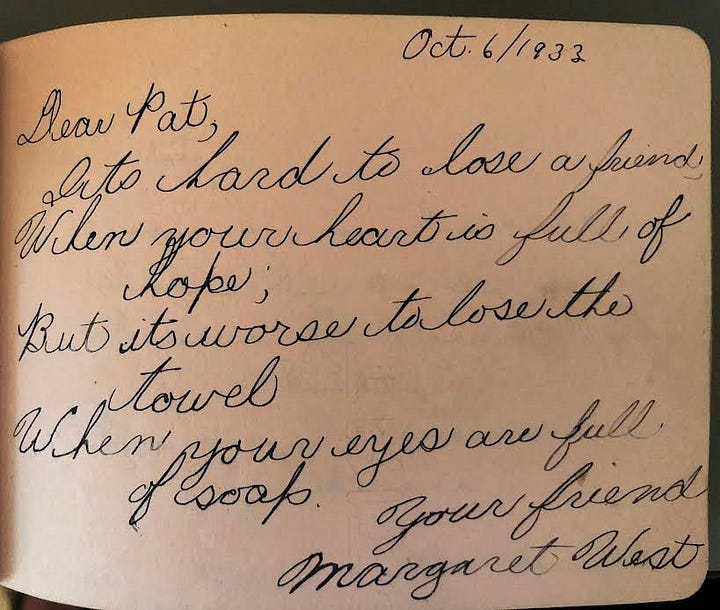 Oct. 6/1933
Dear Pat,
Its hard to lose a friend,
When your heart is full of
hope;
But its worse to lose the
towel
When your eyes are full
of soap.
Your friend
Margaret West